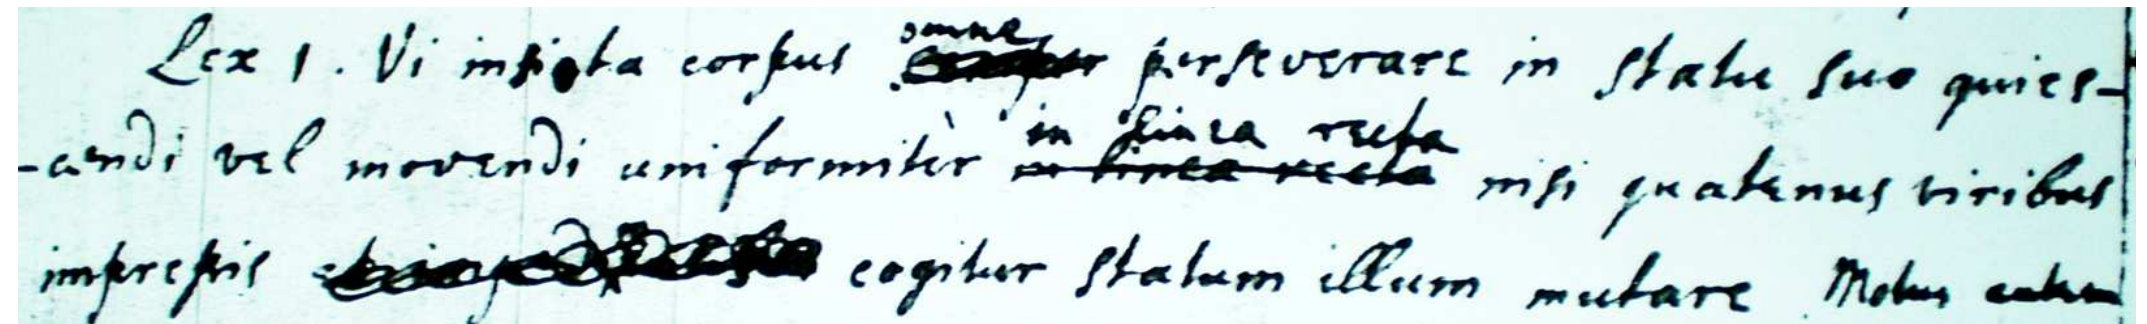 Lex 1. Vi insita corpus omne perseverare in statu suo quies-
-cendi vel movendi uniformitèr in linea recta in linea recta nisi quatenus viribus
impressis cogitur statum illum mutare Motus autem